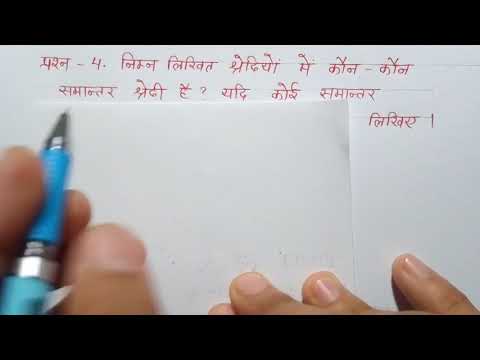 प्रश्न - 4. निम्न लिखित श्रेढियों में कौन - कौन
समान्तर श्रेढी है ? यदि कोई समान्तर
लिखिए ।